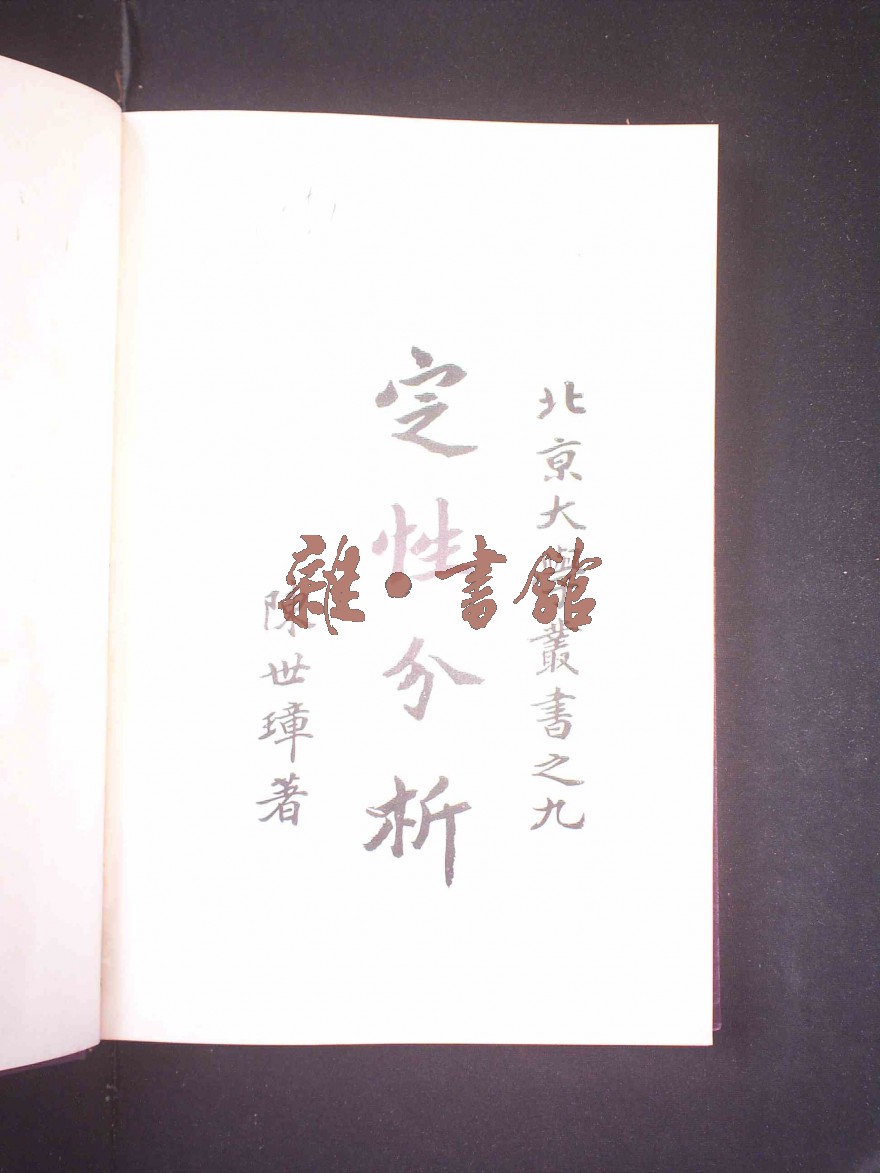 北京大學叢書之九
定性分析
陳世璋著
雜·書館